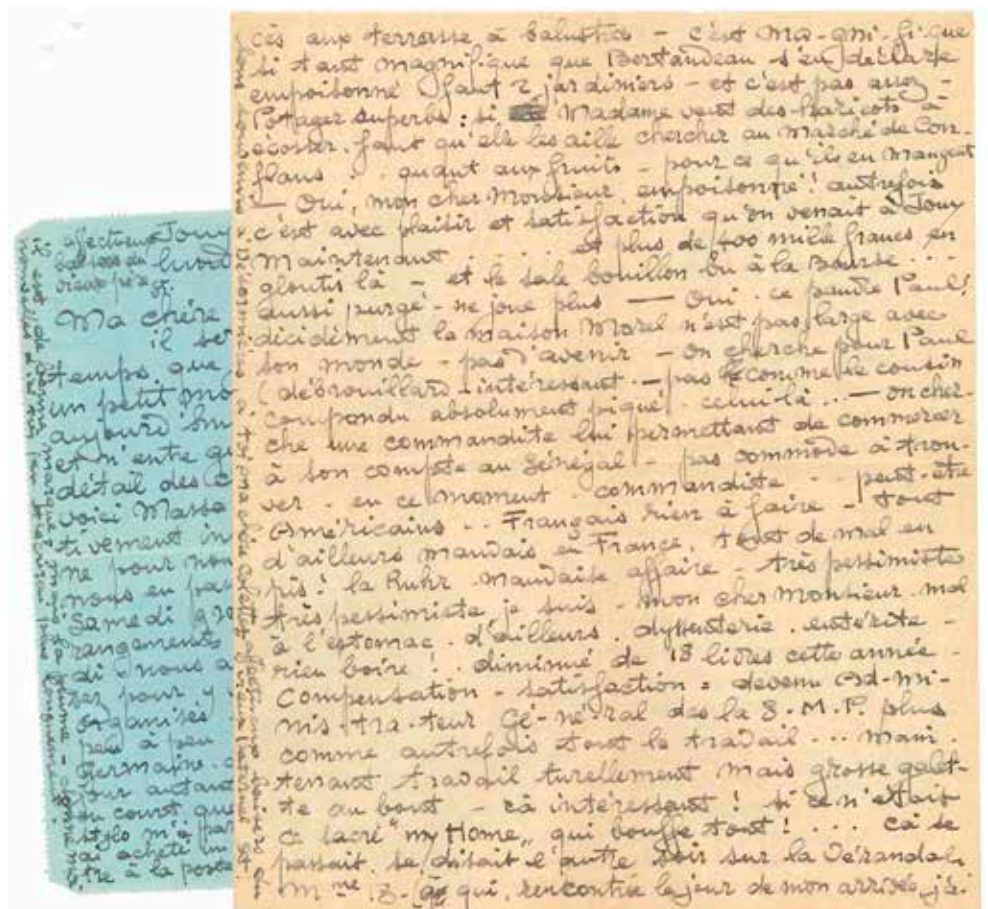 cès aux terrasse à balustres - c'est ma-gni-fique
si tant magnifique que Bertandeau s'en déclare
empoisonné faut 2 jardiniers - et c'est pas assez -
Potager superbe : si Madame veut des haricots à
écosser. faut qu'elle les aille chercher au Marché de Con-
flans . . quant aux fruits - pour ce qu'ils en mangent
— Oui, mon cher Monsieur, empoisonné ! autrefois
c'est avec plaisir et satisfaction qu'on venait à Jouy
Maintenant . . . . . et plus de 400 mille francs en
gloutis là - et le sale bouillon bu à la Bourse ...
aussi purgé - ne joue plus — Oui . ce pauvre Paul !
décidément la maison Morel n'est pas large avec
son monde - pas d'avenir - on cherche pour Paul
(débrouillard - intéressant - pas comme le cousin
absolument piqué celui-là ... — on cher-
che une commandite lui permettant de commercer
à son compte au Sénégal - pas commode à trou-
ver . en ce moment . commandite . . peut-être
Américains . . Français rien à faire - tout
d'ailleurs mauvais en France, tout de mal en
pis ! la Ruhr mauvaise affaire - très pessimiste
très pessimiste je suis - mon cher Monsieur mal
à l'estomac . d'ailleurs . dysenterie . entérite -
rien boire ! . diminué de 18 livres cette année -
Compensation - satisfaction = devenu Ad-mi-
nis-tra-teur Gé-né-ral des la S.M.P. plus
comme autrefois tout le travail ... main-
tenant travail turellement mais grosse galet-
te au bout - çà intéressant ! si ce n'était
ce sacré "my Home,, qui bouffe tout ! . . . ça se
passait, se disait l'autre soir sur la Vérandah
Mme B. qui, rencontrée le jour de mon arrivée, j'é-
affectueux
baisers du
vieux père
Jouy
Ma chère
il se
temps que
un petit mo
aujourd'hui
et n'ente qu
détail des
voici Massa
tivement in
ne pour nou
nous en pa
Samedi gr
rangements
di - nous a
sez pour y
organisés
peu à peu
Germaine.
jour autant
au court que
stylo m'a
ai acheté un
tre à la poste